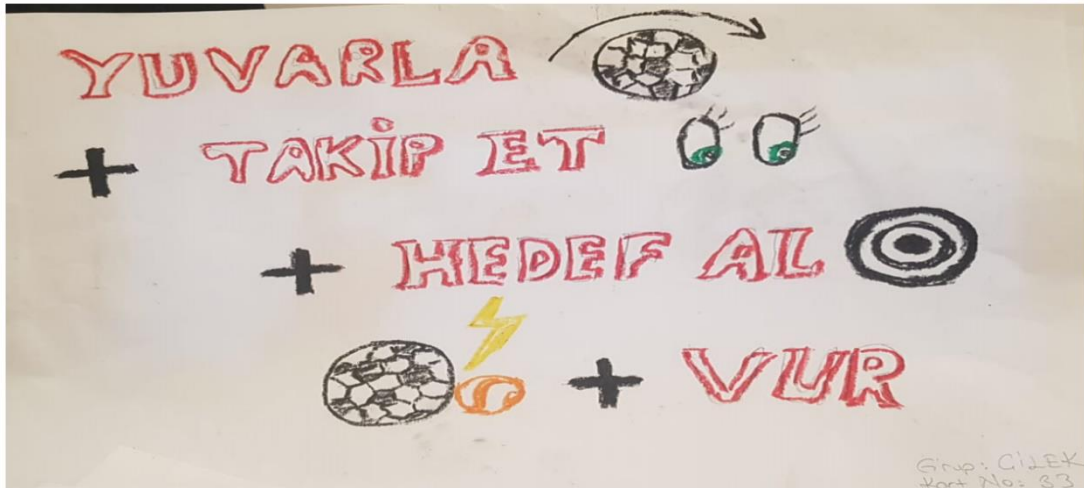 YUVARLA
+ TAKİP ET
+ HEDEF AL
+ VUR
Grup: ÇİLEK
Kart No: 33